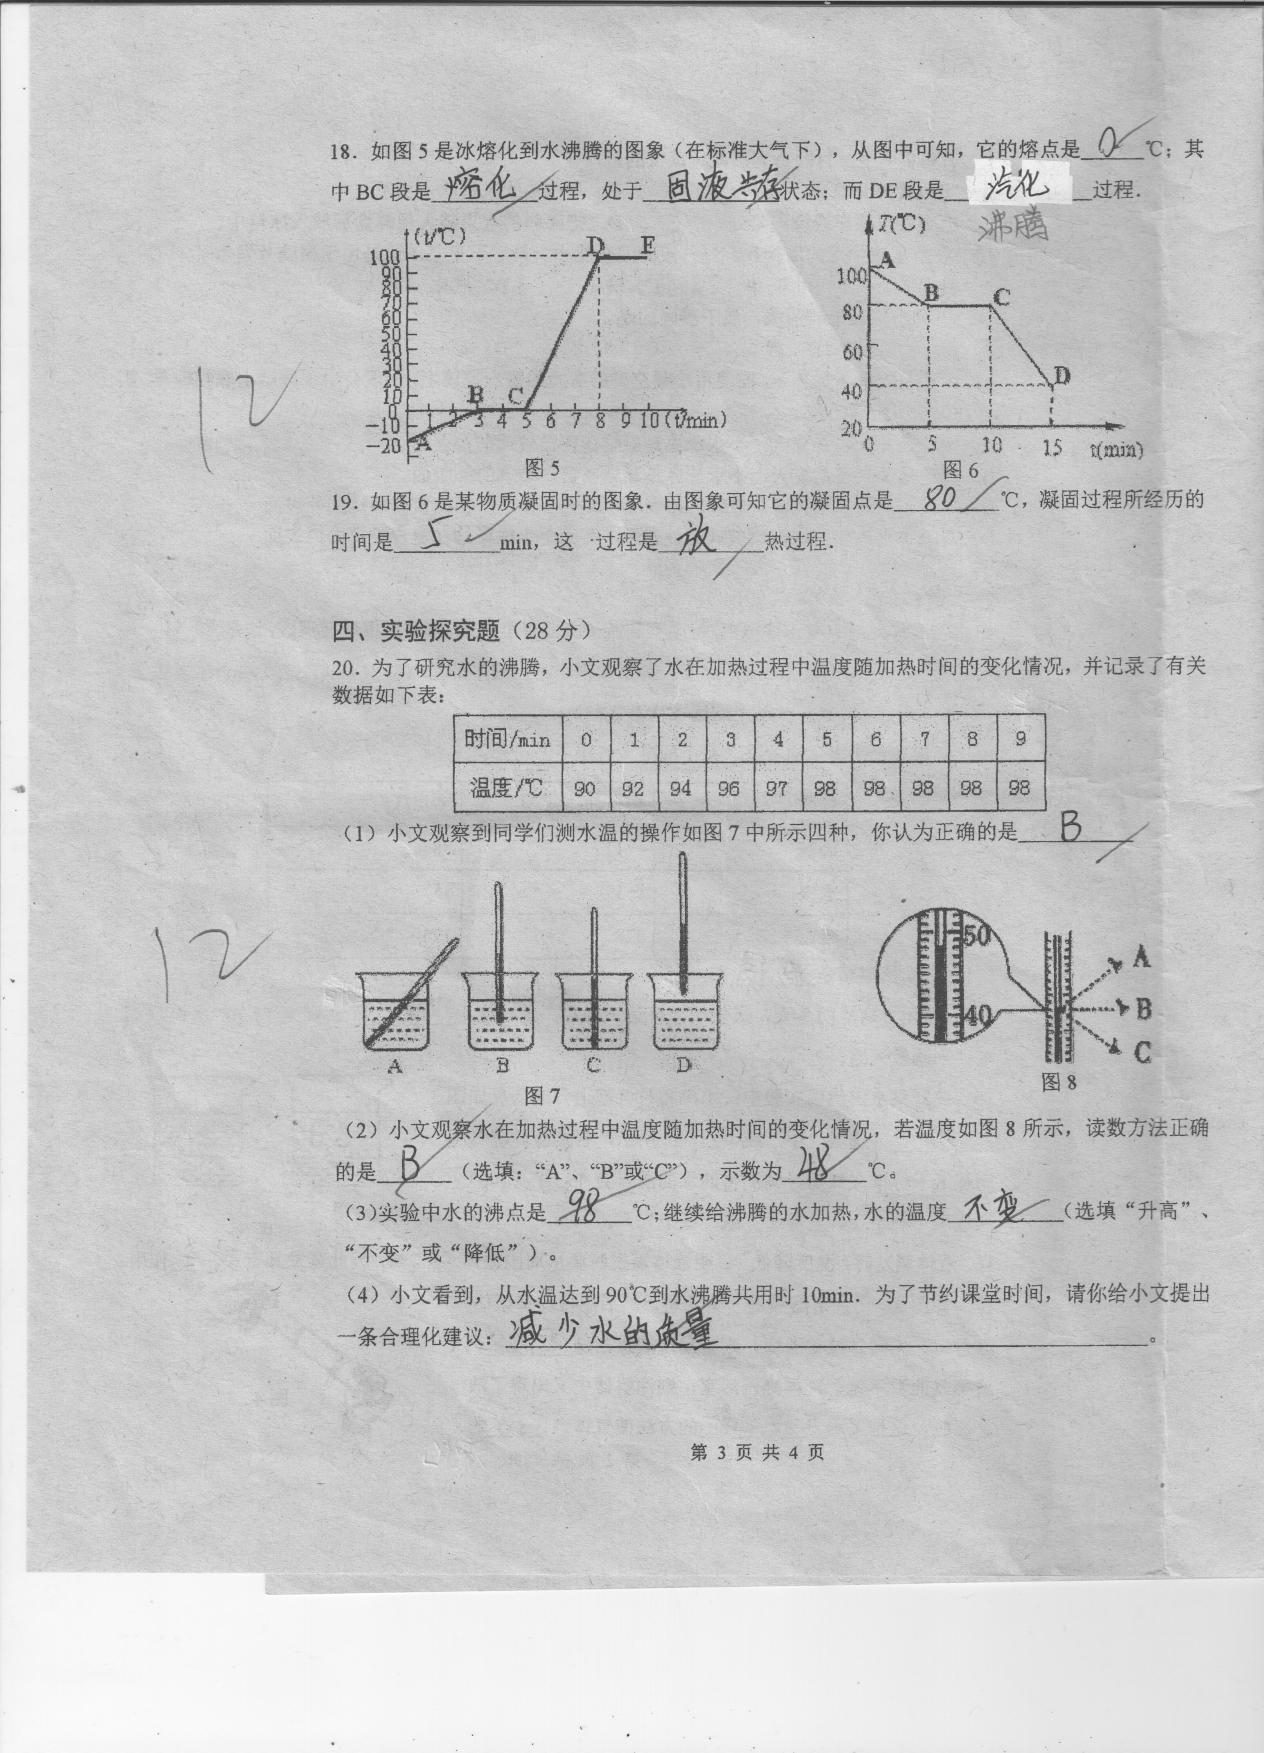 18．如图 5 是冰熔化到水沸腾的图象（在标准大气下），从图中可知，它的熔点是 0 ℃；其
中 BC 段是 熔化 过程，处于 固液共存 状态；而 DE 段是 汽化 过程．
沸腾
(t/℃)
100
90
80
70
60
50
40
30
20
10
0
-10
-20
A
B
C
D
E
1 2 3 4 5 6 7 8 9 10 (t/min)
图 5
T(℃)
100
80
60
40
20
A
B
C
D
0 5 10 15 t(min)
图 6
12
19．如图 6 是某物质凝固时的图象．由图象可知它的凝固点是 80 ℃，凝固过程所经历的
时间是 5 min，这 过程是 放 热过程．
四、实验探究题（28 分）
20．为了研究水的沸腾，小文观察了水在加热过程中温度随加热时间的变化情况，并记录了有关
数据如下表：
时间/min 0 1 2 3 4 5 6 7 8 9
温度/℃ 90 92 94 96 97 98 98 98 98 98
（1）小文观察到同学们测水温的操作如图 7 中所示四种，你认为正确的是 B
12
A B C D
图 7
50
40
A
B
C
图 8
（2）小文观察水在加热过程中温度随加热时间的变化情况，若温度如图 8 所示，读数方法正确
的是 B （选填：“A”、“B”或“C”），示数为 48 ℃。
（3)实验中水的沸点是 98 ℃；继续给沸腾的水加热，水的温度 不变 （选填“升高”、
“不变”或“降低”）。
（4）小文看到，从水温达到 90℃到水沸腾共用时 10min．为了节约课堂时间，请你给小文提出
一条合理化建议： 减少水的质量 。
第 3 页 共 4 页